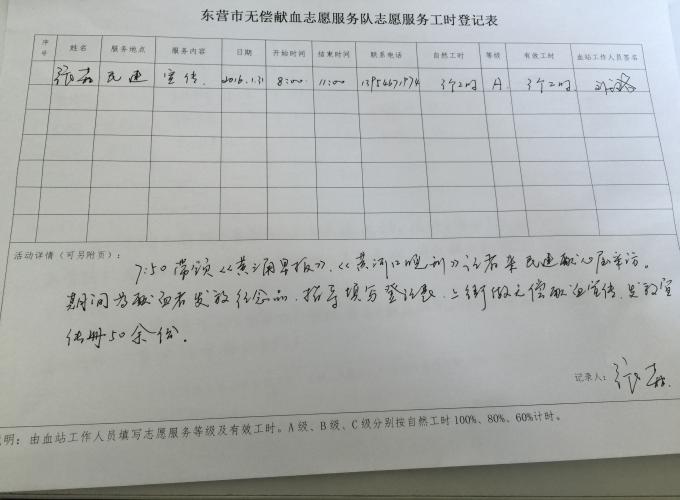 东营市无偿献血志愿服务队志愿服务工时登记表
序号 姓名 服务地点 服务内容 日期 开始时间 结束时间 联系电话 自然工时 等级 有效工时 血站工作人员签名
张森 民建 宣传 2016.1.31 8:00 11:00 3个工时 A 3个工时
活动详情（可另附页）：
7:50带领《黄河早报》、《黄河口晚刊》记者来民建献血屋采访。
期间为献血者发放纪念品、指导填写登记表、上街做无偿献血宣传、发放宣
传册50余份。
记录人：张森
说明：由血站工作人员填写志愿服务等级及有效工时。A级、B级、C级分别按自然工时100%、80%、60%计时。